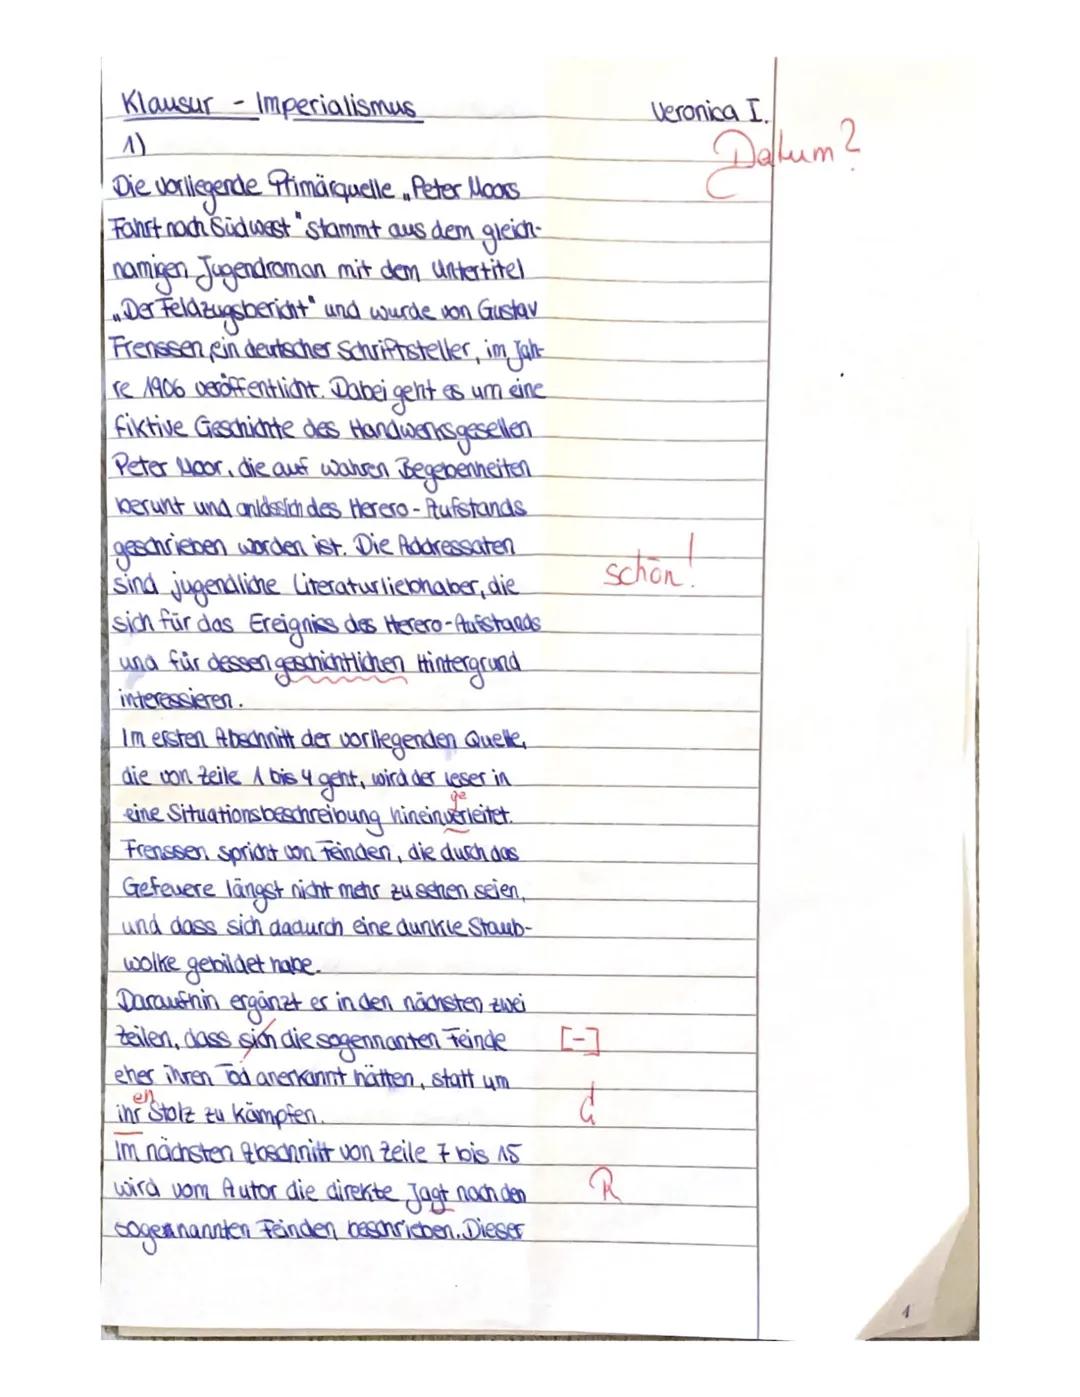 Klausur - Imperialismus Veronica I.
1) Datum?
Die vorliegende Primärquelle „Peter Moors
Fahrt nach Südwest" stammt aus dem gleich-
namigen Jugendroman mit dem Untertitel
„Der Feldzugsbericht" und wurde von Gustav
Frenssen, ein deutscher Schriftsteller, im Jah-
re 1906 veröffentlicht. Dabei geht es um eine
fiktive Geschichte des Handwerksgesellen
Peter Moor, die auf wahren Begebenheiten
beruht und anlässlich des Herero-Aufstands
geschrieben worden ist. Die Addressaten
sind jugendliche Literaturliebhaber, die schön!
sich für das Ereigniss des Herero-Aufstands
und für dessen geschichtlichen Hintergrund
interessieren.
Im ersten Abschnitt der vorliegenden Quelle,
die von Zeile 1 bis 4 geht, wird der Leser in
ge
eine Situationsbeschreibung hineinverleitet.
Frenssen spricht von Feinden, die durch das
Gefeuere längst nicht mehr zu sehen seien,
und dass sich dadurch eine dunkle Staub-
wolke gebildet habe.
Daraufhin ergänzt er in den nächsten zwei
Zeilen, dass sich die sogennanten Feinde [-]
eher ihren Tod anerkannt hätten, statt um
en
ihr Stolz zu kämpfen. G
Im nächsten Abschnitt von Zeile 7 bis 15
wird vom Autor die direkte Jagt nach den R
sogennannten Feinden beschrieben. Dieser
1